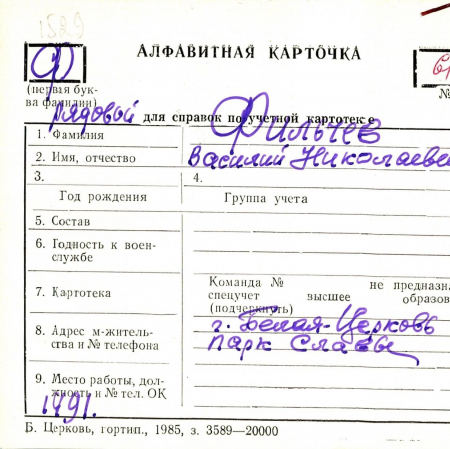 1529
Ф
АЛФАВИТНАЯ КАРТОЧКА
(первая бук-
ва фамилии)
№
рядовой для справок по учетной картотеке
1. Фамилия Фильчев
2. Имя, отчество Василий Николаеви
3. 4.
Год рождения Группа учета
5. Состав
6. Годность к воен-
службе
7. Картотека
Команда № не предназна
спецучет высшее образов
(подчеркнуть)
8. Адрес м-житель-
ства и № телефона
г. Белая-Церковь
Парк Славы
9. Место работы, дол-
жность и № тел. ОК
1491.
Б. Церковь, гортип., 1985, з. 3589—20000